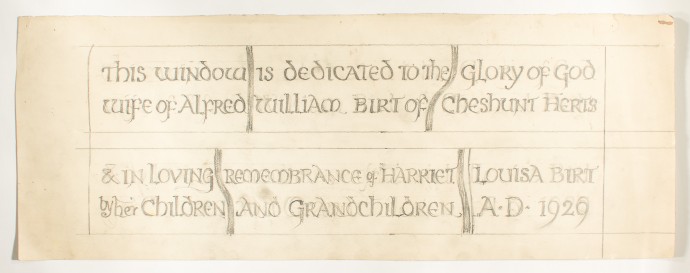 This window is dedicated to the Glory of God
wife of Alfred William Birt of Cheshunt Herts
& in Loving remembrance of Harriet Louisa Birt
by her Children and Grandchildren A·D· 1929